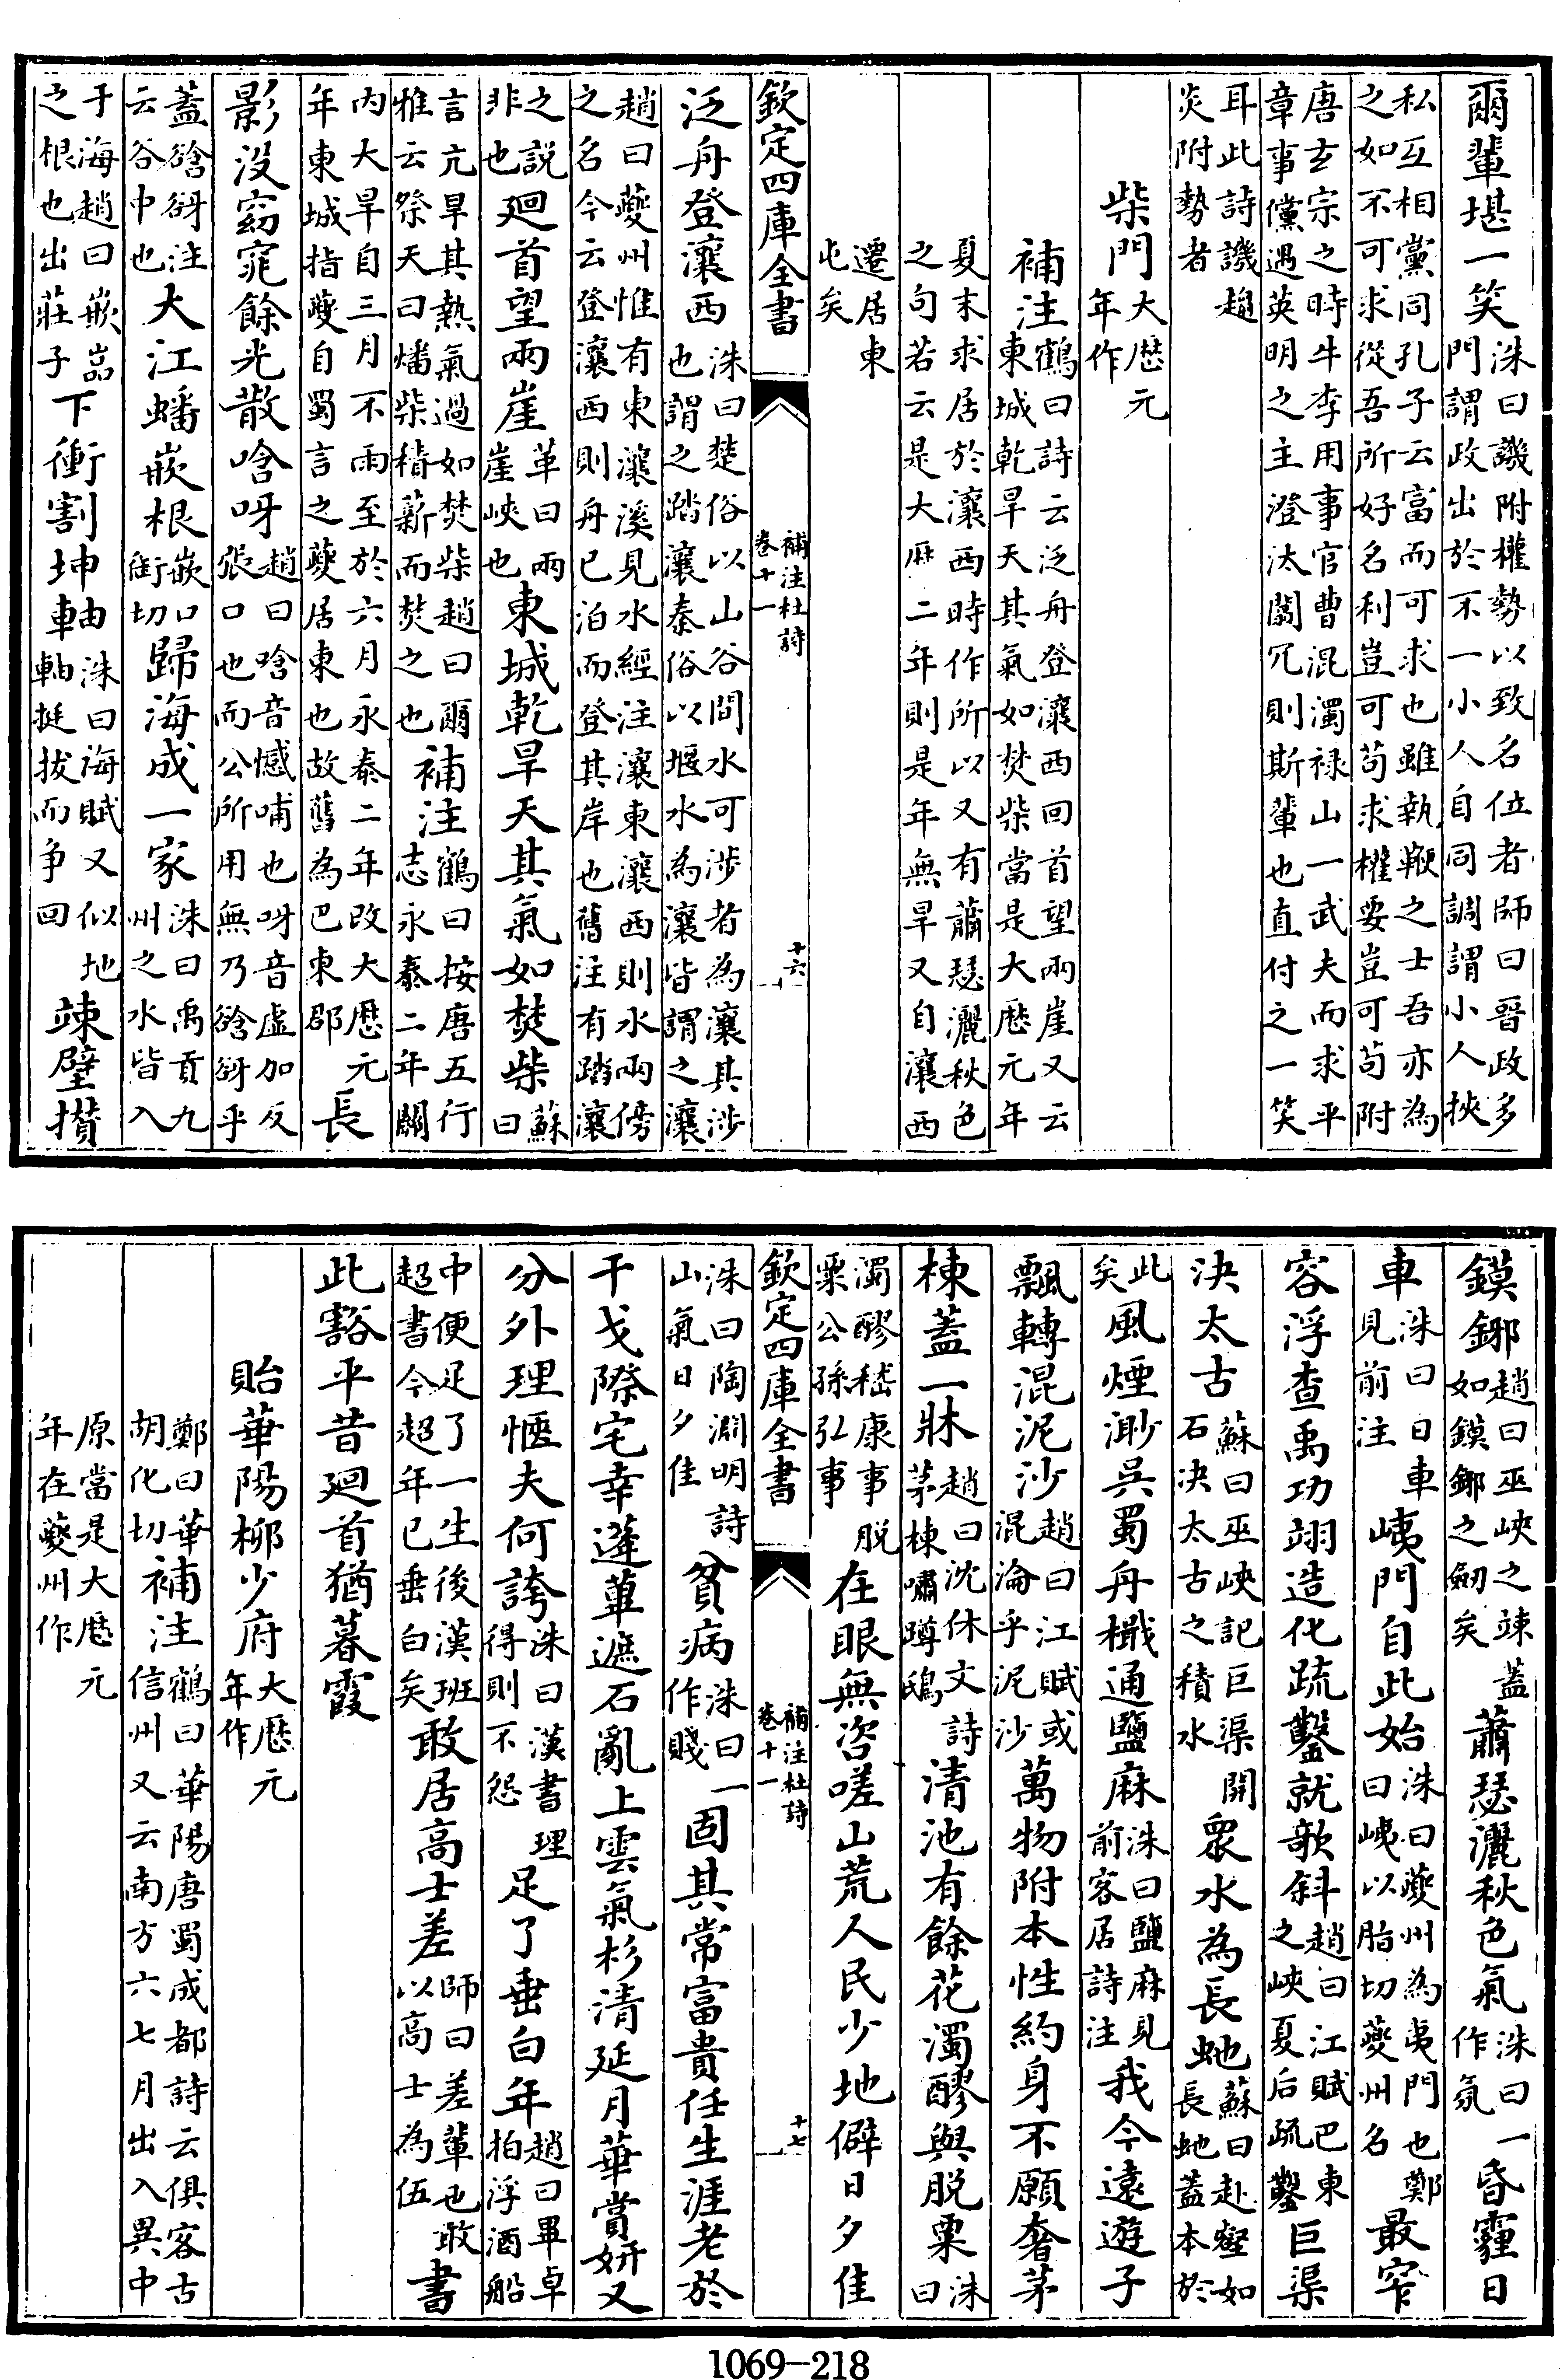 爾輩堪一笑洙曰譏附權勢以致名位者師曰晉政多門謂政出於不一小人自同調謂小人挾
私互相黨同孔子云富而可求也雖執鞭之士吾亦為之如不可求從吾所好名利豈可苟求權要豈可苟附
唐玄宗之時牛李用事官曹混濁禄山一武夫而求平章事儻遇英明之主澄汰闒冗則斯輩也直付之一笑
耳此詩譏趨炎附勢者
柴門大厯元年作
補注鶴曰詩云泛舟登瀼西回首望兩崖又云東城乾旱天其氣如焚柴當是大厯元年
夏末求居於瀼西時作所以又有蕭瑟灑秋色之句若云是大厯二年則是年無旱又自瀼西
遷居東屯矣
欽定四庫全書 補注杜詩卷十一 十六
泛舟登瀼西洙曰楚俗以山谷間水可涉者為瀼其涉也謂之踏瀼秦俗以堰水為瀼皆謂之瀼
趙曰夔州惟有東瀼溪見水經注瀼東瀼西則水兩傍之名今云登瀼西則舟已泊而登其岸也舊注有踏瀼
之説非也廻首望兩崖革曰兩崖峽也東城乾旱天其氣如焚柴蘇曰
言亢旱其熱氣過如焚柴趙曰爾雅云祭天曰燔柴積薪而焚之也補注鶴曰按唐五行志永泰二年關
内大旱自三月不雨至於六月永泰二年改大厯元年東城指夔自蜀言之夔居東也故舊為巴東郡長
影没窈窕餘光散唅呀趙曰唅音憾哺也呀音虛加反張口也而公所用無乃谽谺乎
蓋谽谺注云谷中也大江蟠嵌根嵌口銜切歸海成一家洙曰禹貢九州之水皆入
于海趙曰嵌嵓之根也出莊子下衝割坤軸洙曰海賦又似地軸挺拔而争回竦壁攅
鏌鎁趙曰巫峽之竦如鏌鎁之劒矣蓋蕭瑟灑秋色氣洙曰一作氛昏霾日
車洙曰日車見前注峓門自此始洙曰夔州為夷門也鄭曰峓以脂切夔州名最窄
容浮查禹功翊造化疏鑿就欹斜趙曰江賦巴東之峽夏后疏鑿巨渠
決太古蘇曰巫峽記巨渠開石決太古之積水眾水為長虵蘇曰赴壑如長虵蓋本於
此矣風煙渺吳蜀舟檝通鹽麻洙曰鹽麻見前客居詩注我今遠遊子
飄轉混泥沙趙曰江賦或混淪乎泥沙萬物附本性約身不願奢茅
棟蓋一牀趙曰沈休文詩茅棟嘯蹲鴟清池有餘花濁醪與脱粟洙曰
濁醪嵇康事脱粟公孫弘事在眼無咨嗟山荒人民少地僻日夕佳
欽定四庫全書 補注杜詩卷十一 十七
洙曰陶淵明詩山氣日夕佳貧病洙曰一作賤固其常富貴任生涯老於
干戈際宅幸蓬蓽遮石亂上雲氣杉清延月華賞妍又
分外理愜夫何誇洙曰漢書理得則不怨足了垂白年趙曰畢卓拍浮酒船
中便足了一生後漢班超書今超年已垂白矣敢居高士差師曰差輩也敢以高士為伍書
此豁平昔廻首猶暮霞
貽華陽柳少府大厯元年作
鄭曰華胡化切補注鶴曰華陽唐蜀成都詩云俱客古信州又云南方六七月出入異中
原當是大厯元年在夔州作
1069-218